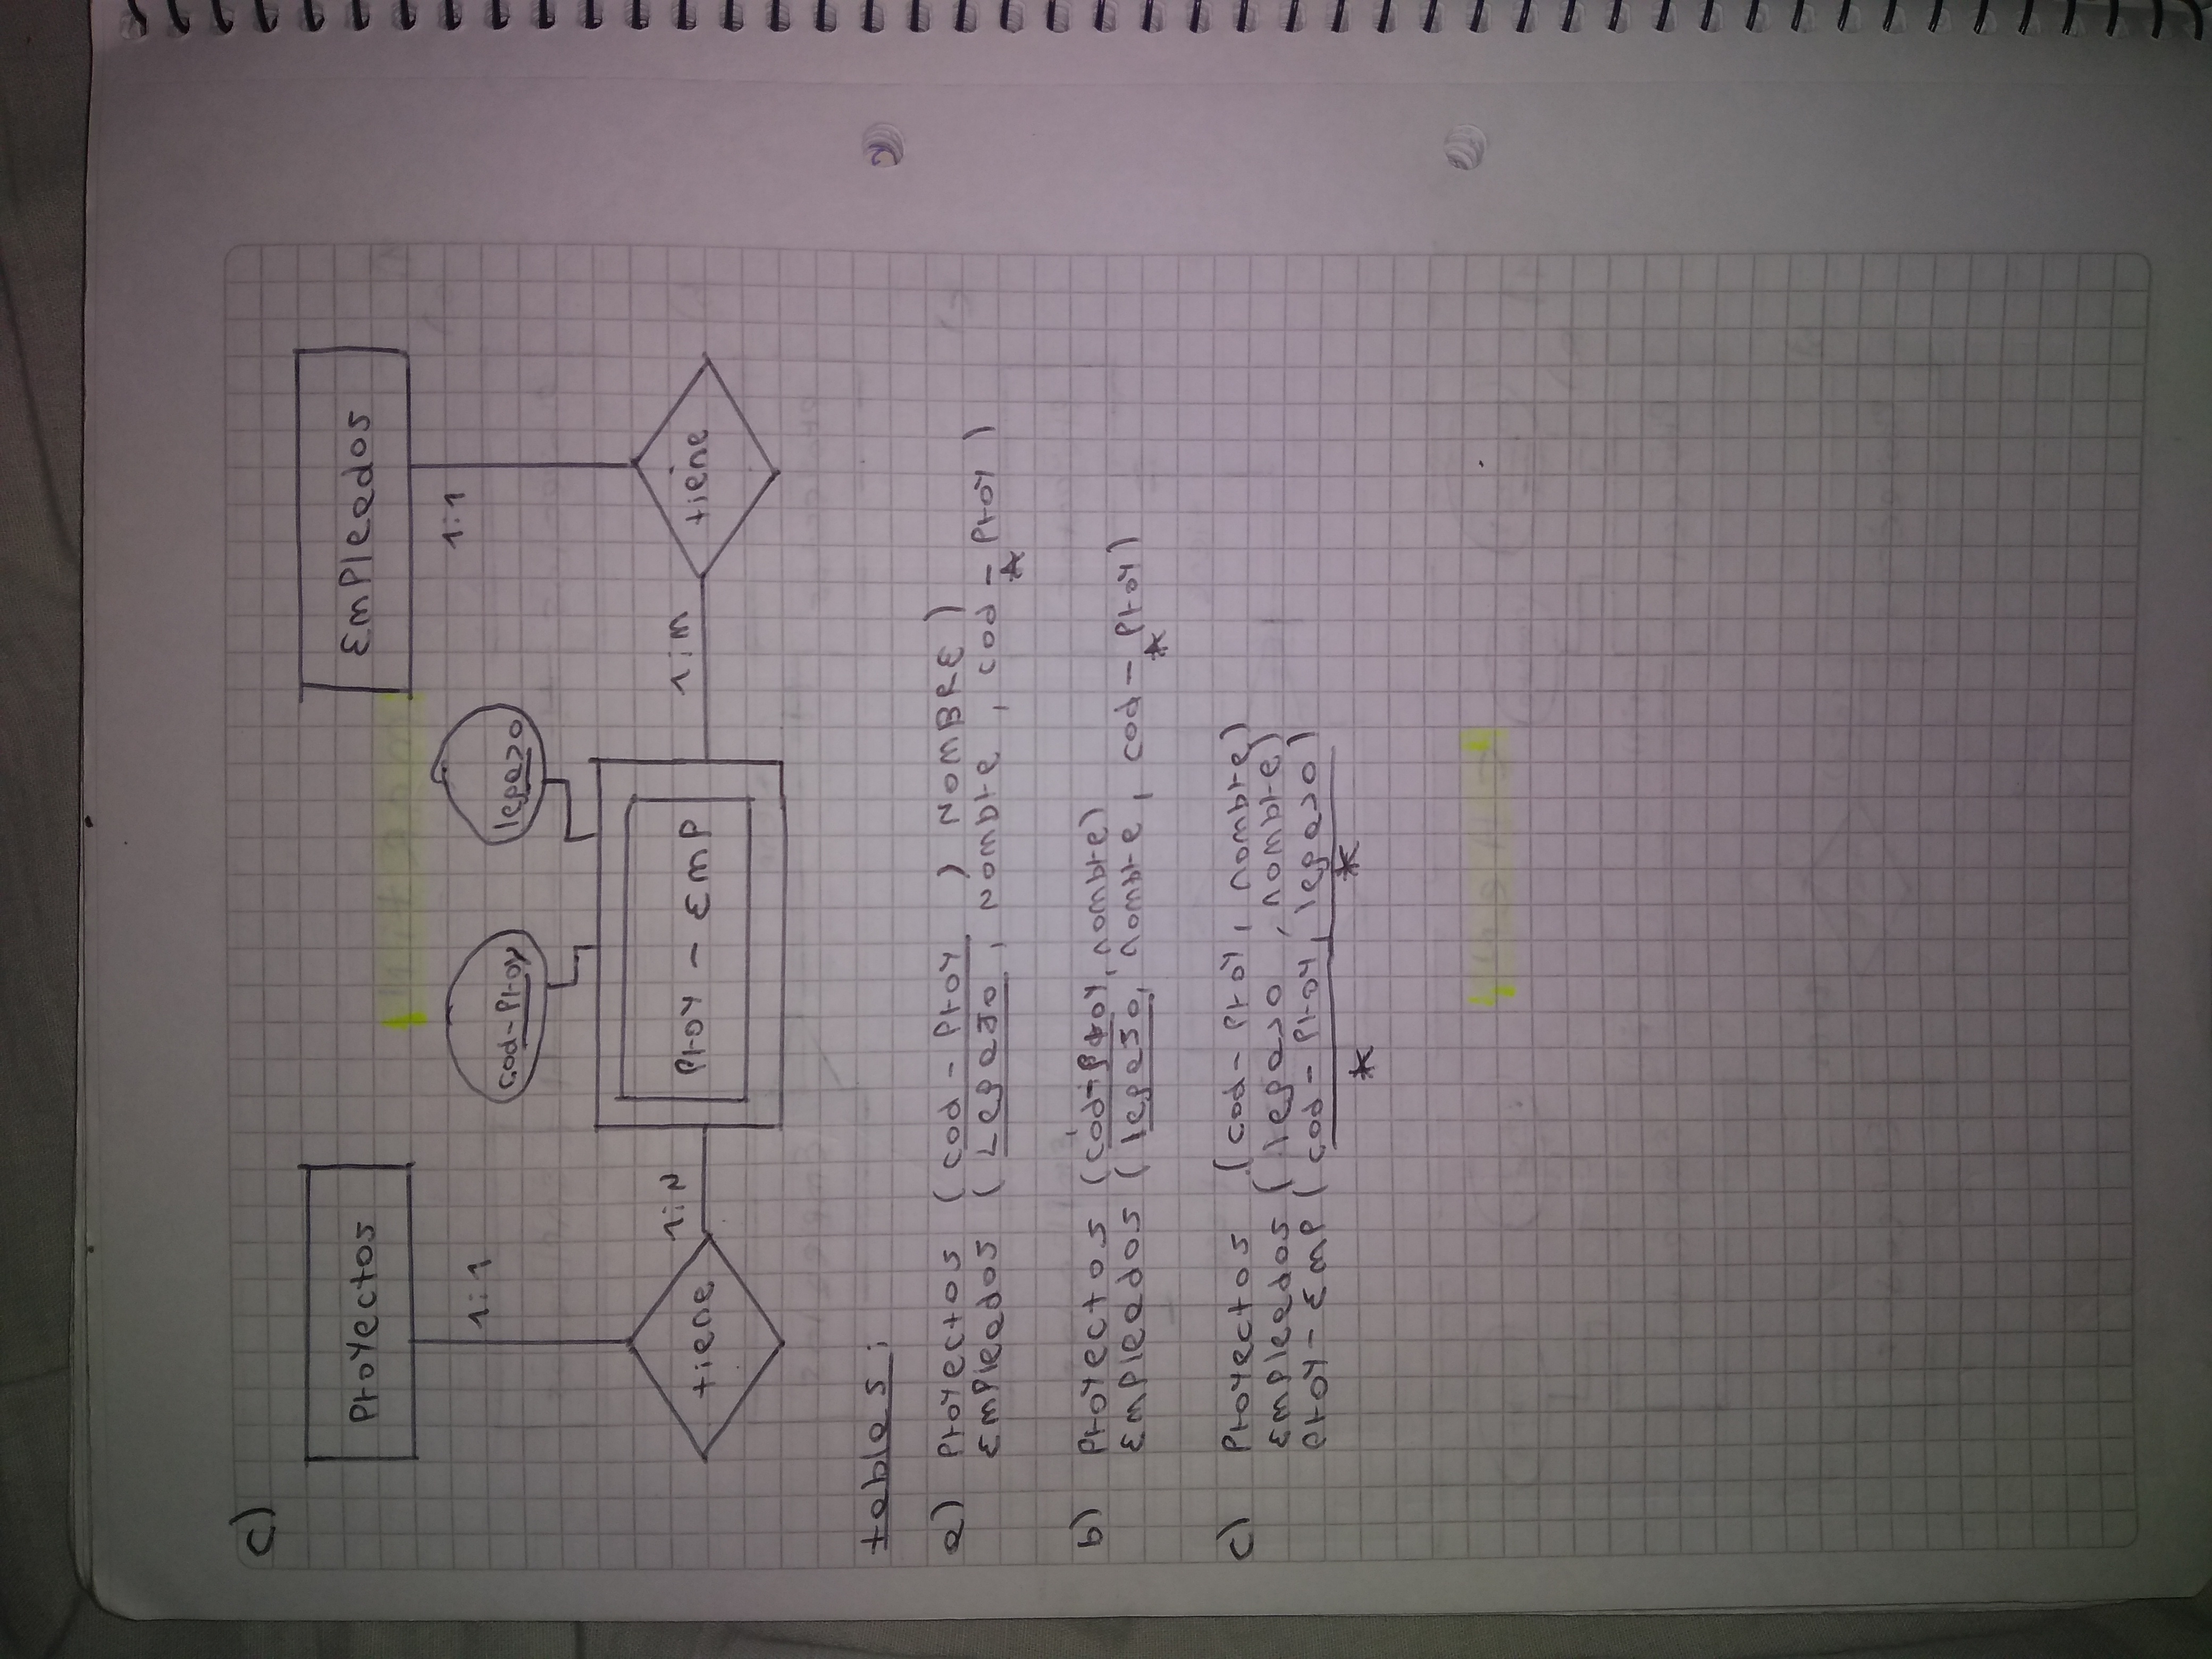 c)
Proyectos
Empleados
1:1
1:1
cod-Proy
legajo
tiene
1:N
Proy - Emp
1:M
tiene
tablas:
a) Proyectos (cod-Proy, NOMBRE)
Empleados (Legajo, Nombre, cod-Proy)
*
b) Proyectos (cod-Proy, nombre)
Empleados (legajo, nombre, cod-Proy)
*
c) Proyectos (cod-Proy, nombre)
Empleados (legajo, nombre)
Proy-Emp (cod-Proy, legajo)
* *